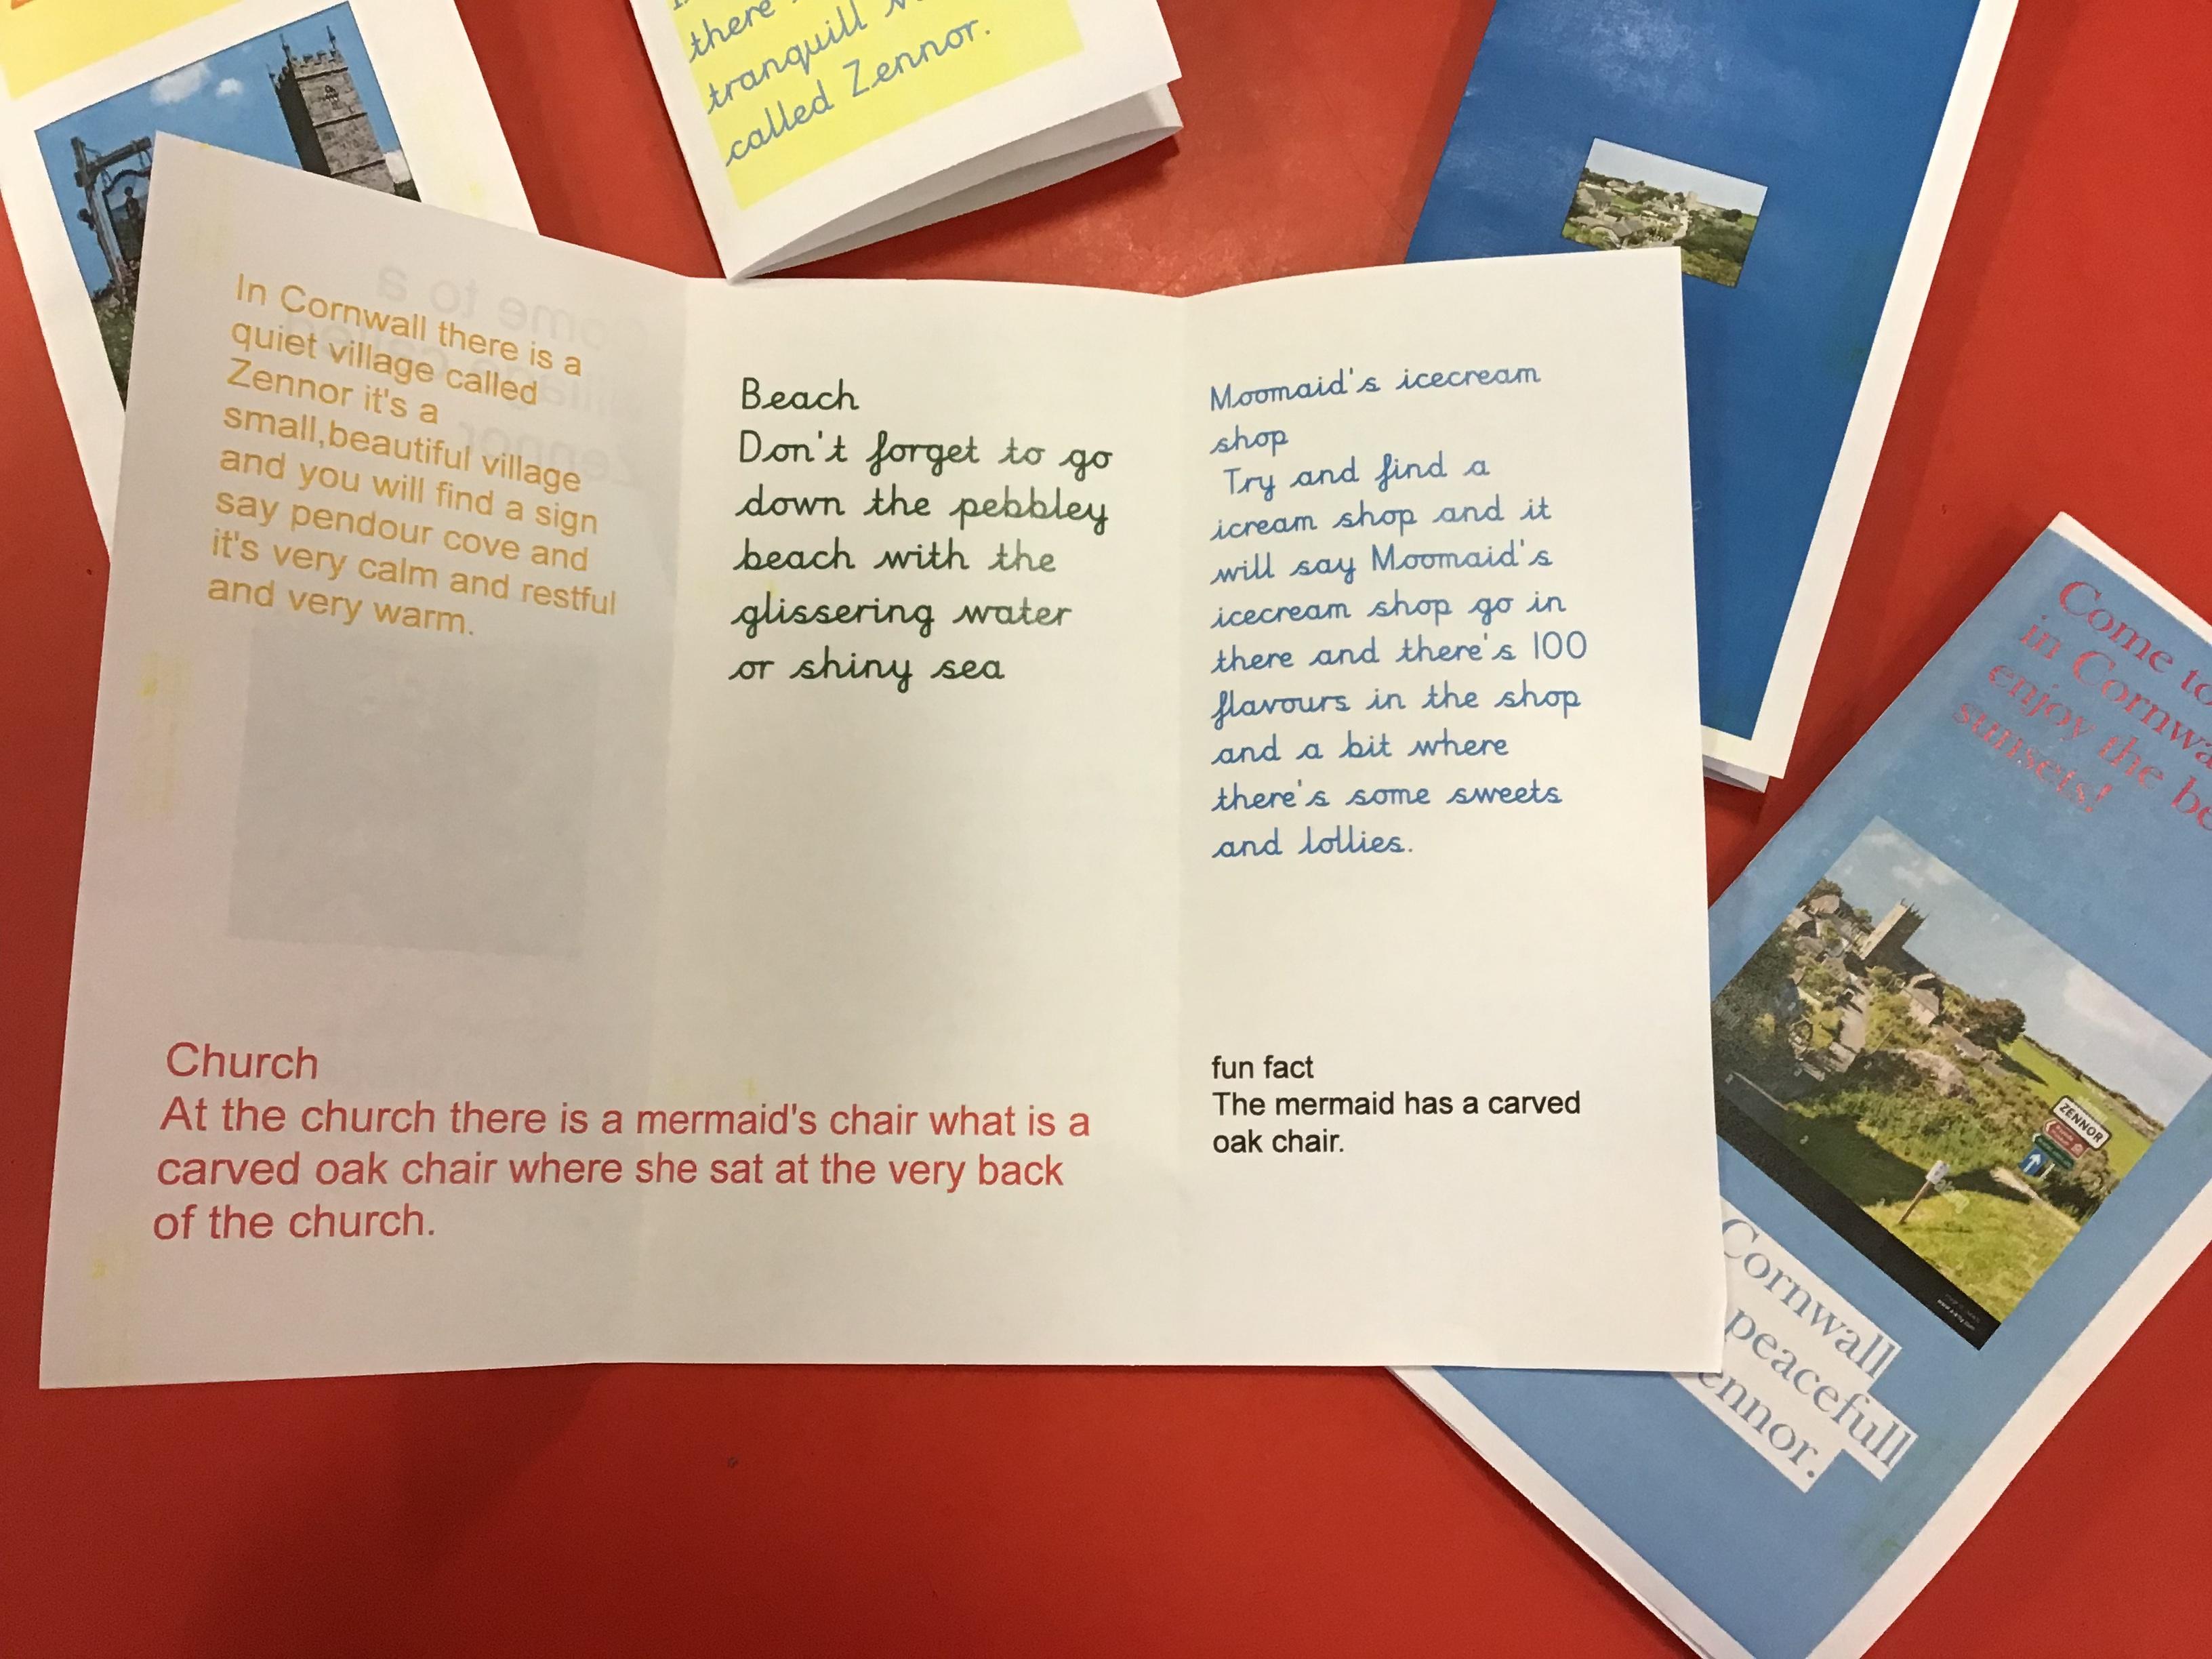 there
tranquill
called Zennor.
In Cornwall there is a
quiet village called
Zennor it's a
small,beautiful village
and you will find a sign
say pendour cove and
it's very calm and restful
and very warm.
Beach
Don't forget to go
down the pebbley
beach with the
glissering water
or shiny sea
Moomaid's icecream
shop
Try and find a
icream shop and it
will say Moomaid's
icecream shop go in
there and there's 100
flavours in the shop
and a bit where
there's some sweets
and lollies.
Church
At the church there is a mermaid's chair what is a
carved oak chair where she sat at the very back
of the church.
fun fact
The mermaid has a carved
oak chair.
Come to
in Cornwa
enjoy the be
sunsets!
ZENNOR
Cornwall
peacefull
ennor.